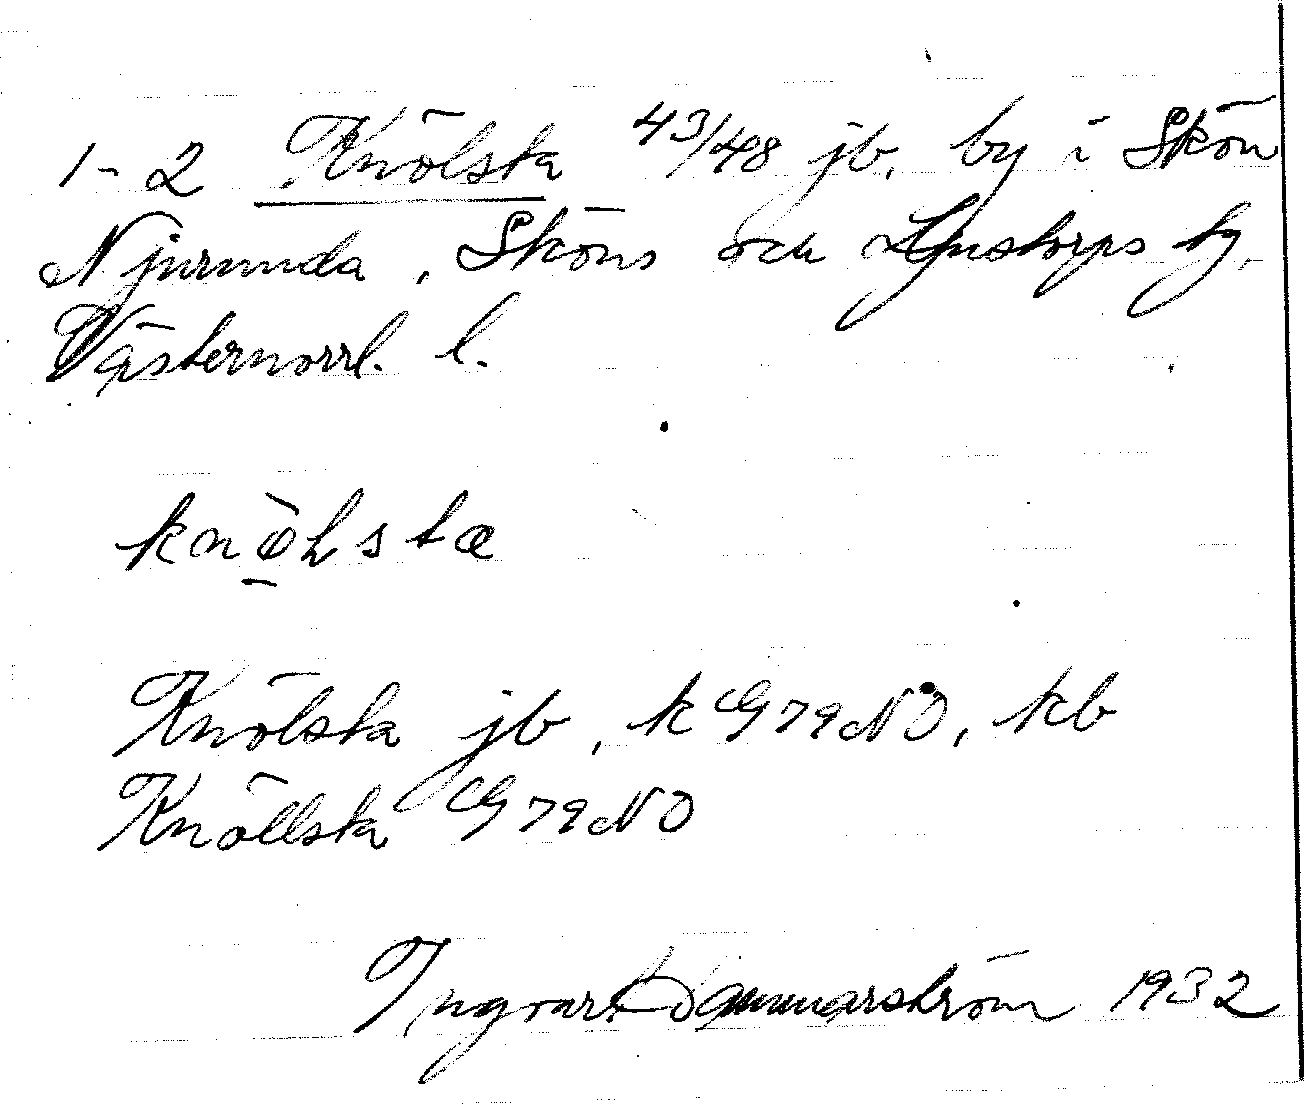 1-2 Knölsta 43/48 jb. by i Skön
Njurunda, Sköns och Ljustorps tg.
Västernorrl. l.
knöhsta
Knölsta jb, k G79NO, kb
Knöllsta G79NO
Ingvar Hammarström 1932